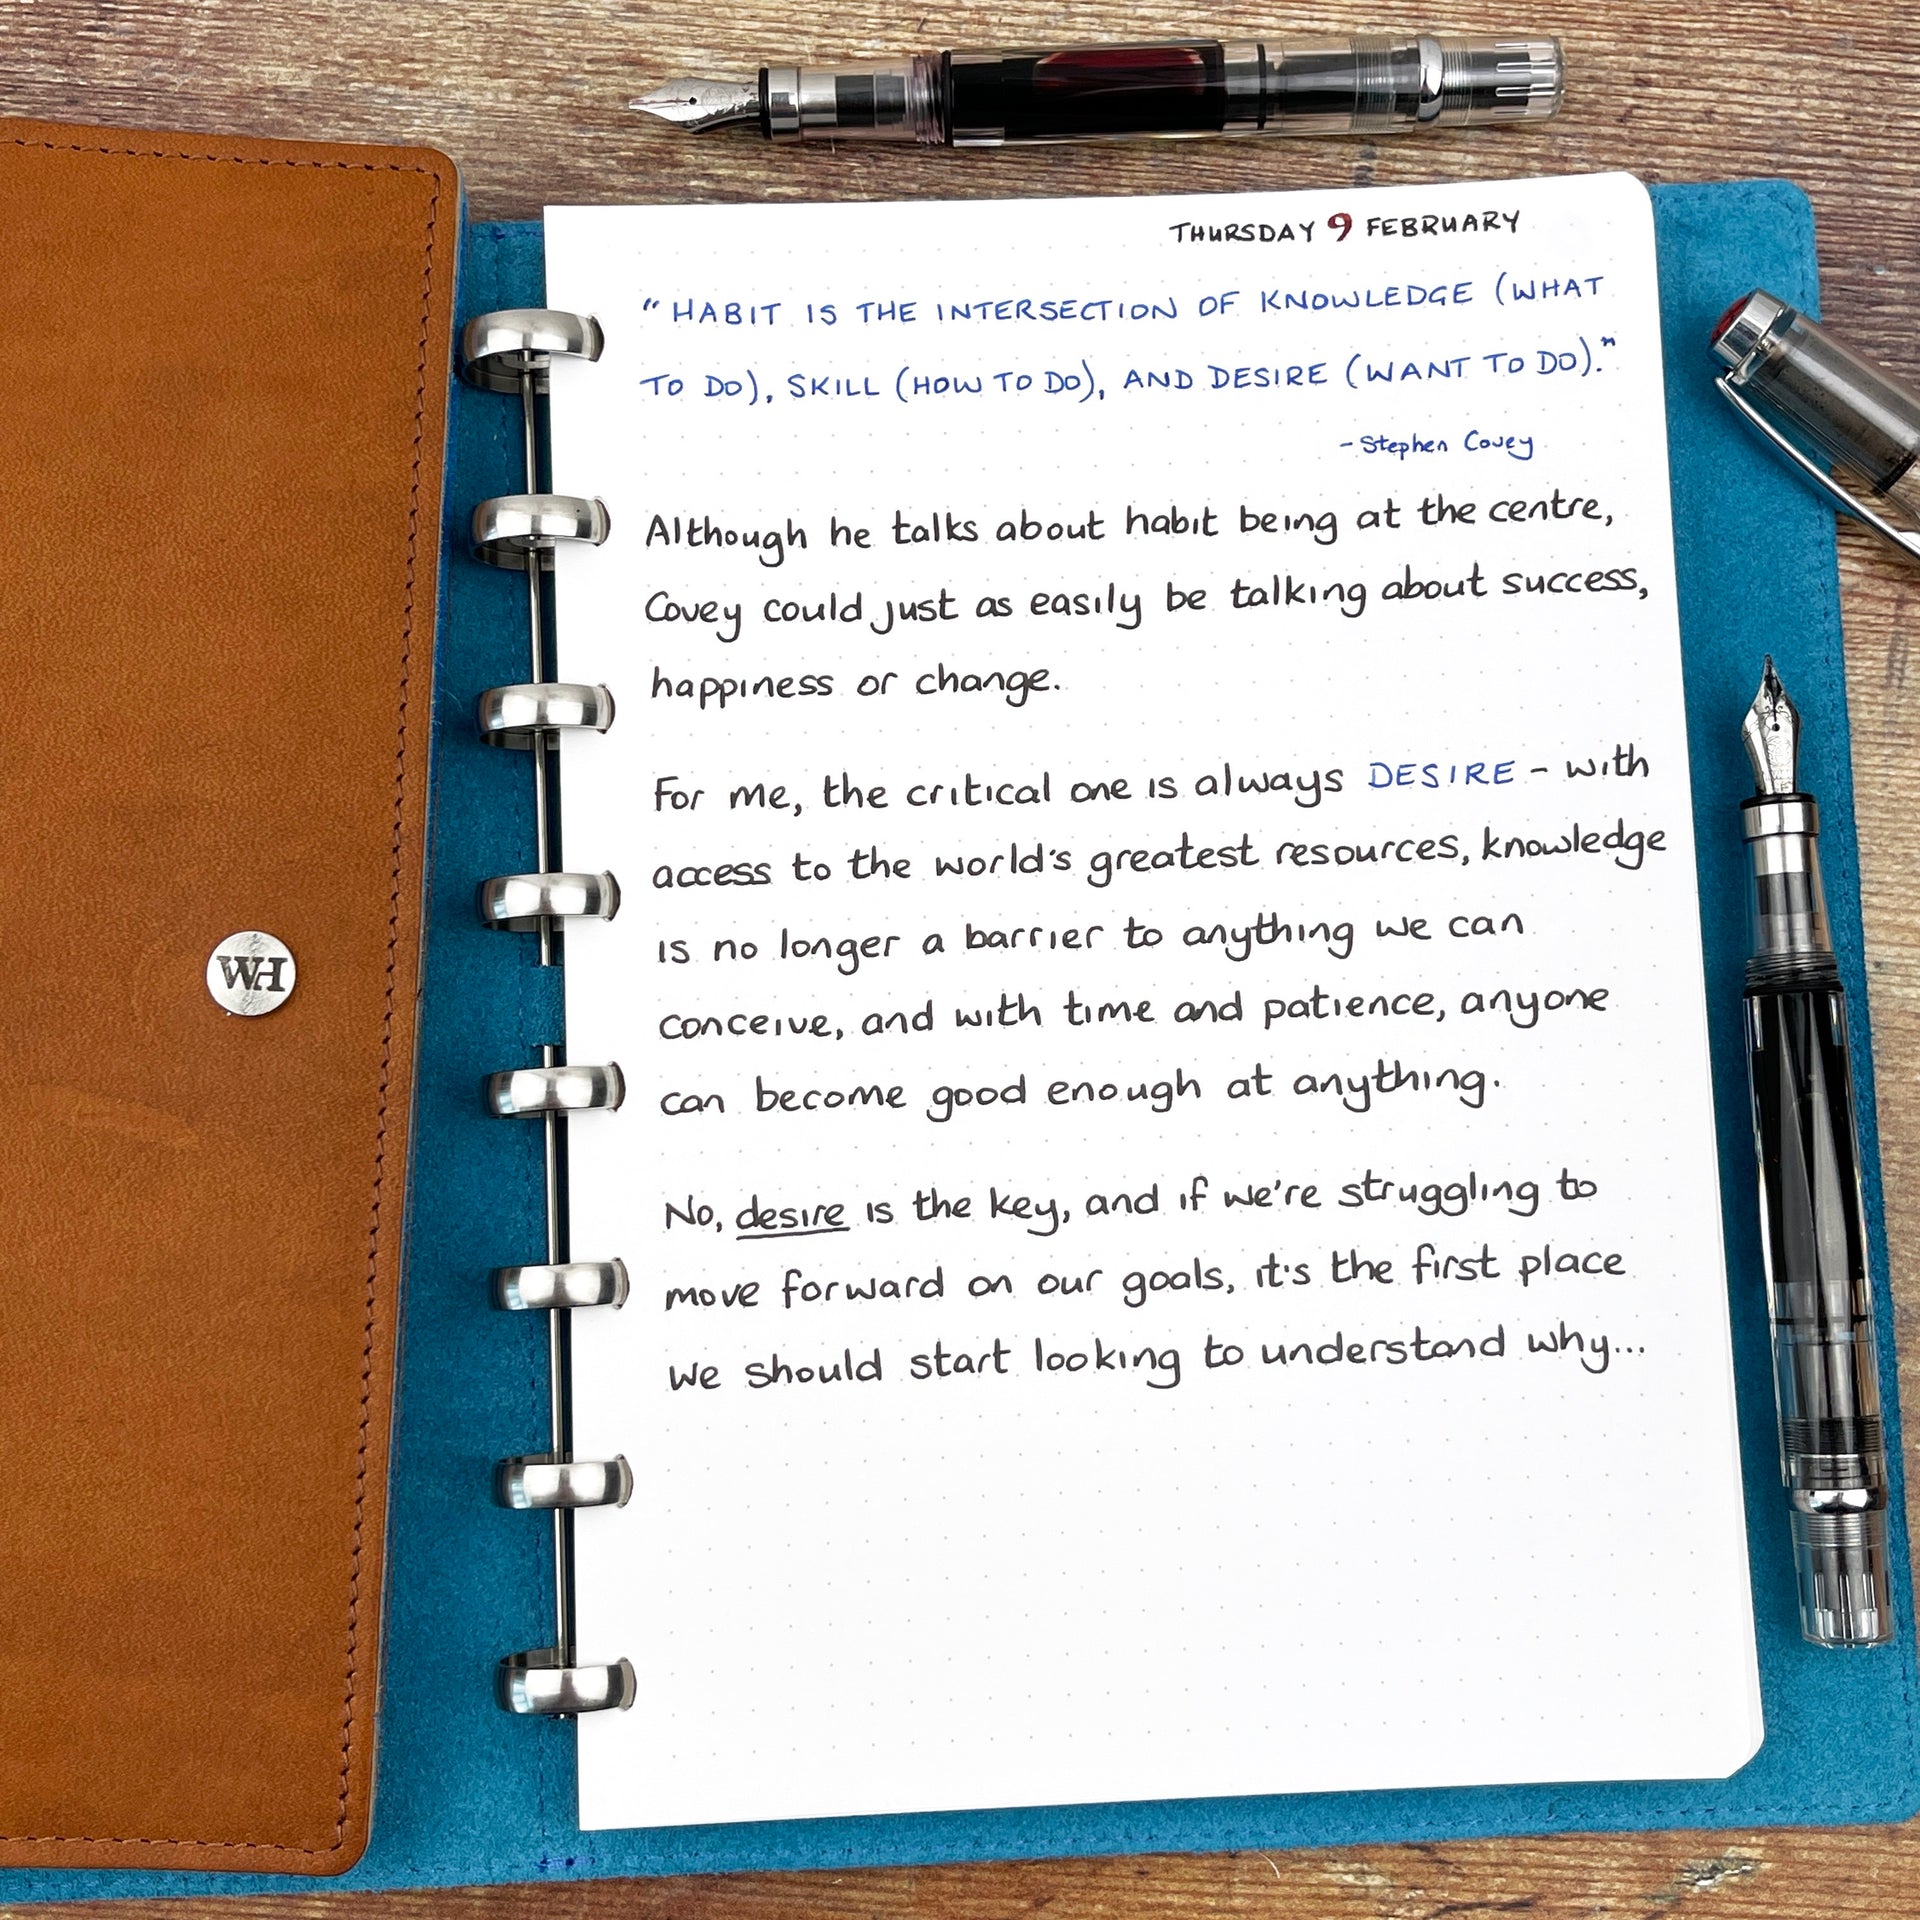 THURSDAY 9 FEBRUARY
"HABIT IS THE INTERSECTION OF KNOWLEDGE (WHAT
TO DO), SKILL (HOW TO DO), AND DESIRE (WANT TO DO)."
- Stephen Covey
Although he talks about habit being at the centre,
Covey could just as easily be talking about success,
happiness or change.
For me, the critical one is always DESIRE - with
access to the world's greatest resources, knowledge
is no longer a barrier to anything we can
conceive, and with time and patience, anyone
can become good enough at anything.
No, desire is the key, and if we're struggling to
move forward on our goals, it's the first place
we should start looking to understand why...
WH